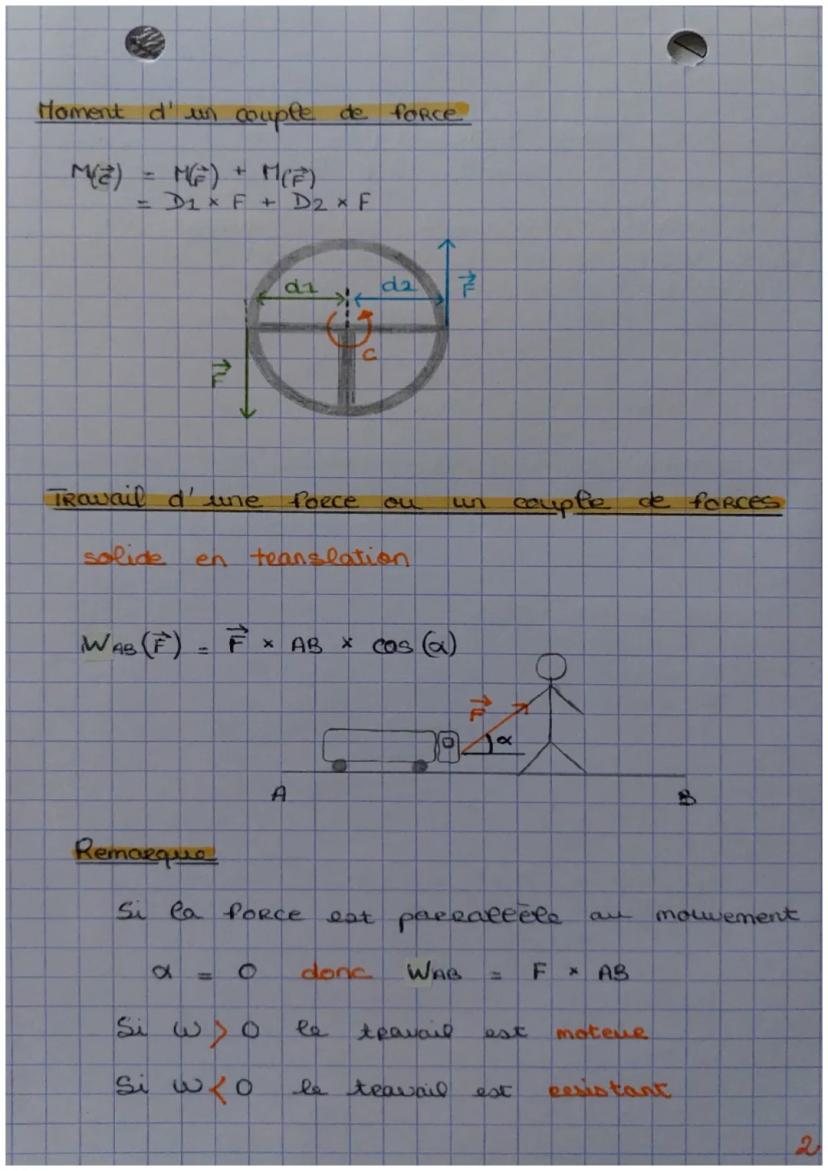 Moment d'un couple de force
M(C⃗) = M(F⃗) + M(F⃗)
= D1 × F + D2 × F
d1
d2
F⃗
C
F⃗
Travail d'une force ou un couple de forces
solide en translation
WAB(F⃗) = F⃗ × AB × cos(α)
F⃗
α
A
B
Remarque
Si la force est parrallèle au mouvement
α = 0 donc WAB = F × AB
Si W > 0 le travail est moteur
Si W < 0 le travail est resistant
2